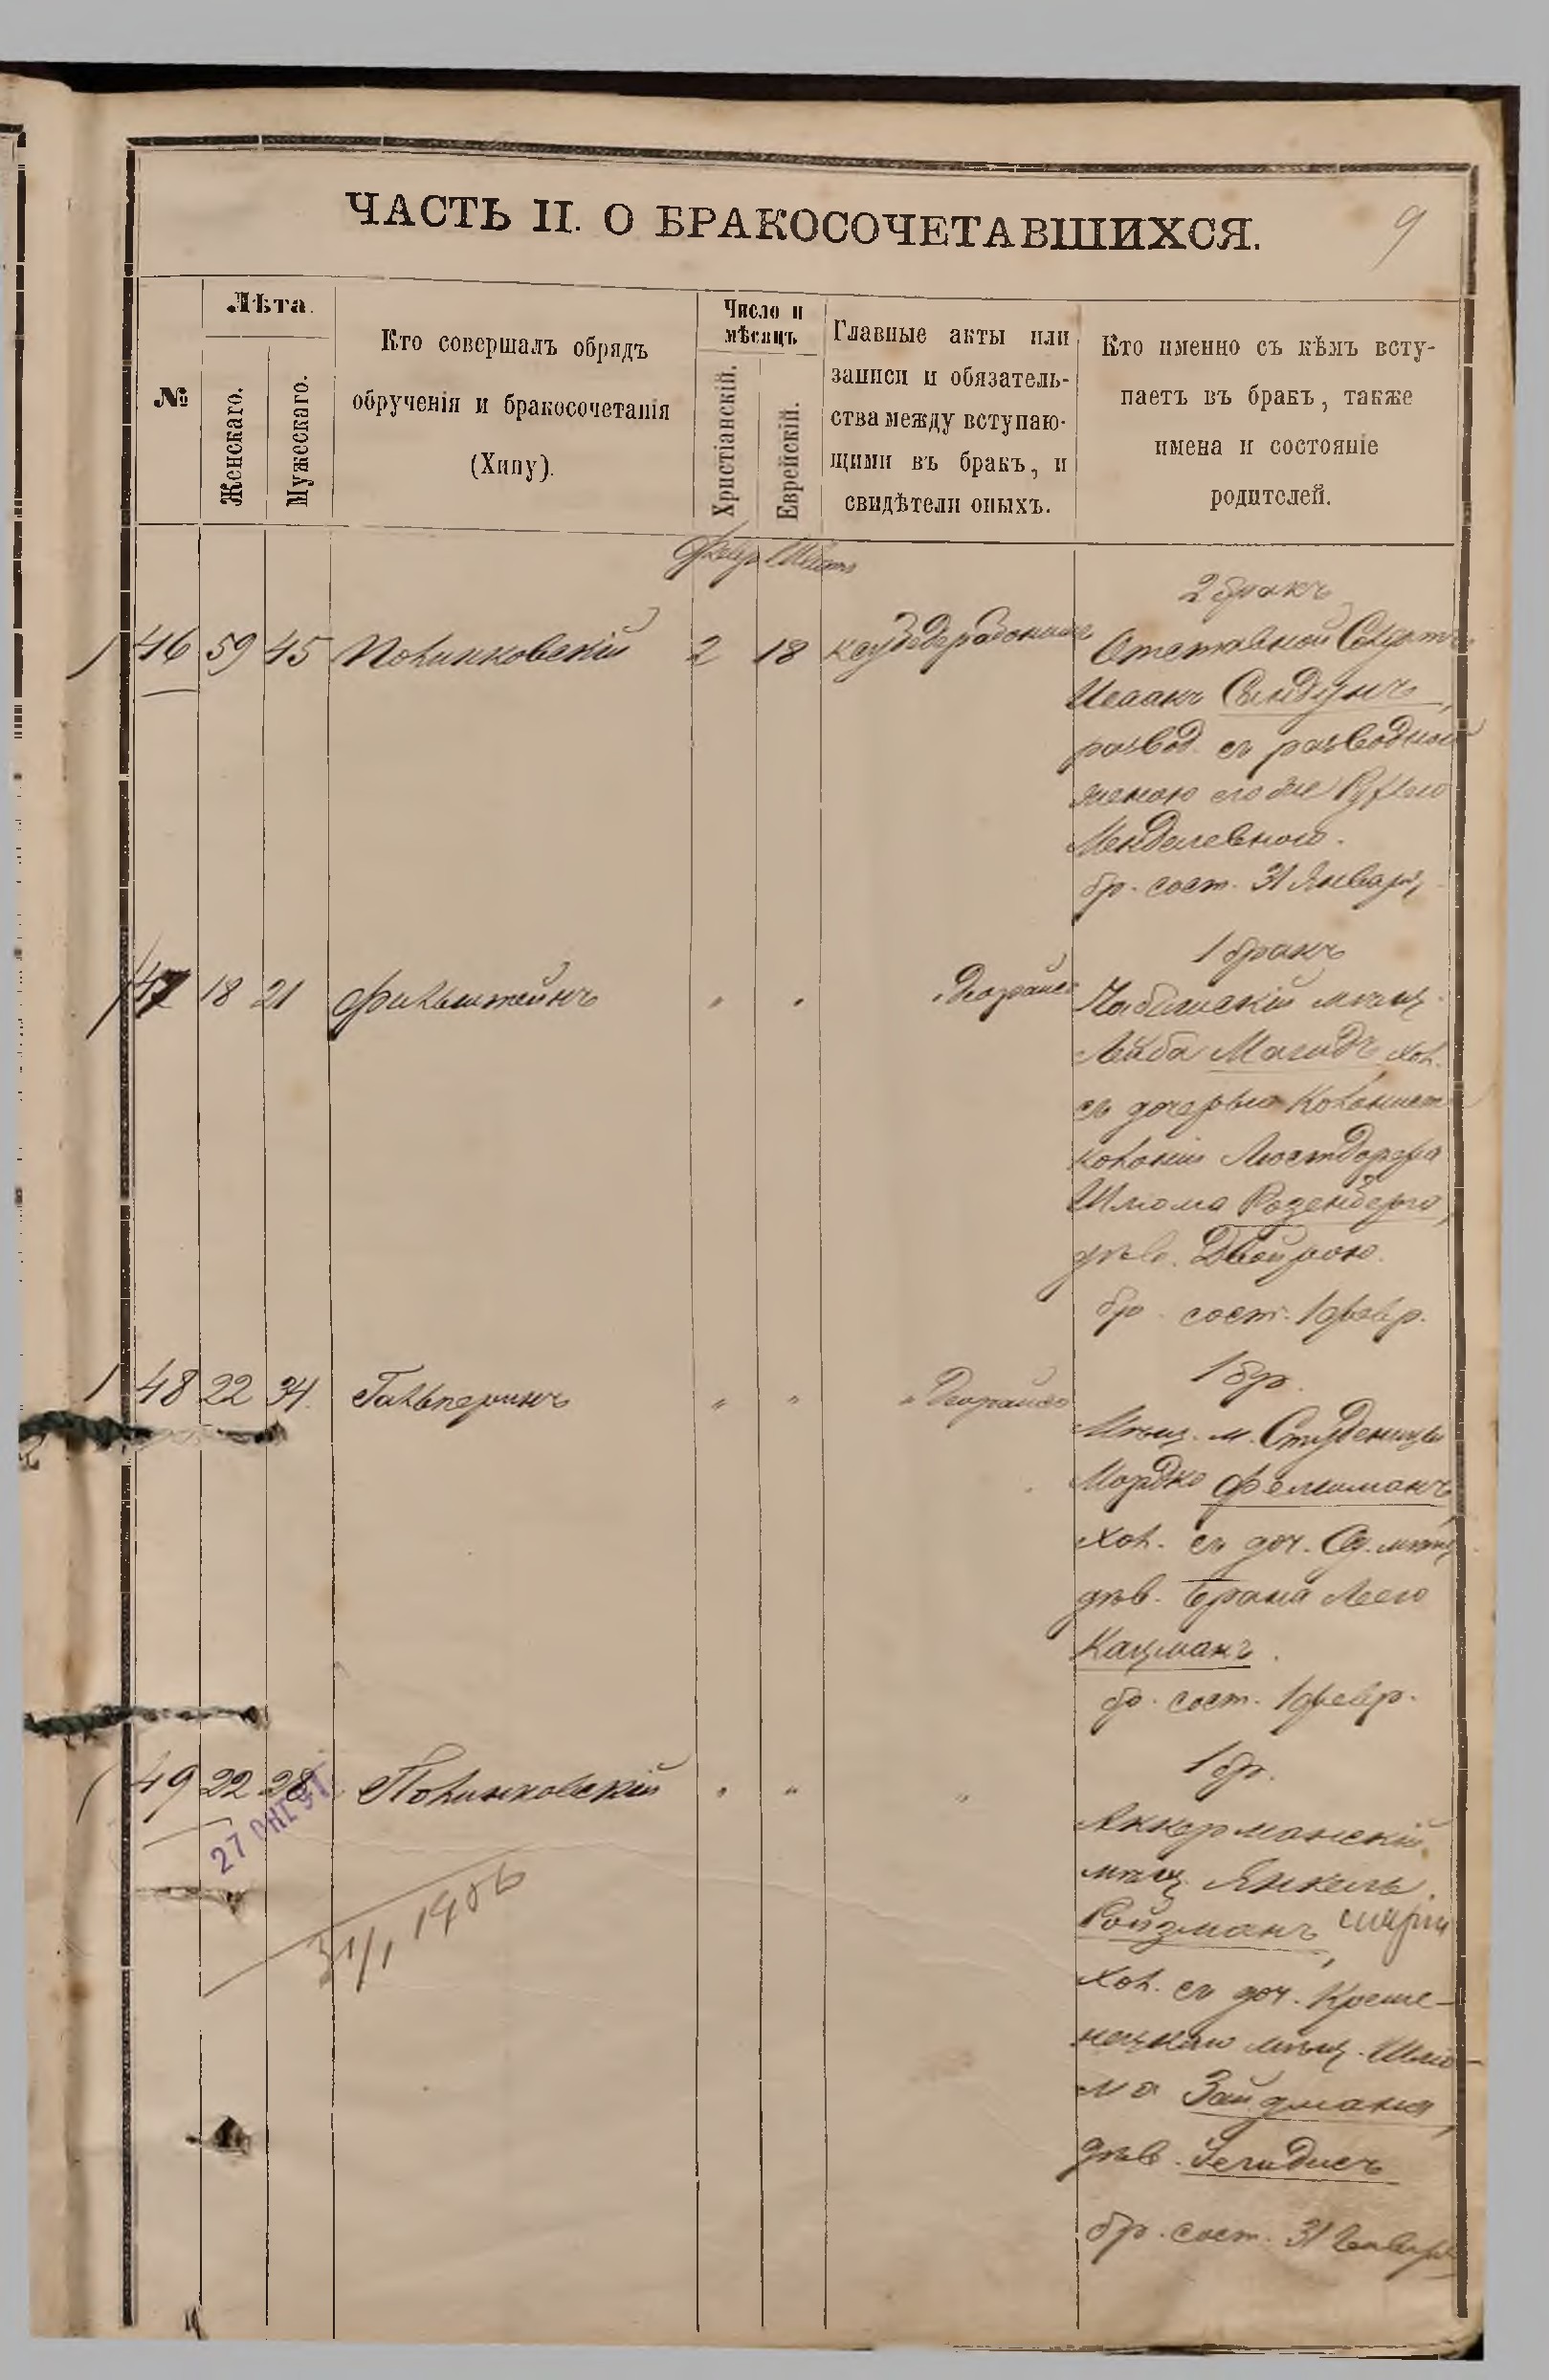 ЧАСТЬ II. О БРАКОСОЧЕТАВШИХСЯ.
9
№
Лѣта.
Женскаго.
Мужескаго.
Кто совершалъ обрядъ
обрученія и бракосочетанія
(Хипу).
Число и
мѣсяцъ
Христіанскій.
Еврейскій.
Главные акты или
записи и обязатель-
ства между вступаю-
щими въ бракъ, и
свидѣтели оныхъ.
Кто именно съ кѣмъ всту-
паетъ въ бракъ, также
имена и состояніе
родителей.
Февр Шватъ
46 59 45 Полинковскій 2 18
2 бракъ
Отставной
Исаакъ
развод. съ разводной
женою его же
Менделевною.
бр. сост. 31 Января
47 18 21 Финкельштейнъ " "
1 бракъ
мѣщ.
Лейба Магидъ хол.
съ дочерью колонист
колоніи Люстдорфа
Шлома Розенберга,
дѣв. Двойрою.
бр. сост. 1 февр.
48 22 34. Гальперинъ " " "
1 бр.
Мѣщ. м. Студеницы
Мордко Фельманъ,
хол. съ доч. Од. мѣщ
дѣв. Брана Леею
Кацманъ.
бр. сост. 1 февр.
49 22 28 Полинковскій " " "
27
31/I 1906
1 бр.
Аккерманскій
мѣщ. Янкель
Ройзманъ,
хол. съ доч. Креме-
нецкаго мѣщ. Шлио-
ма Зайдмана,
дѣв.
бр. сост. 31 Января